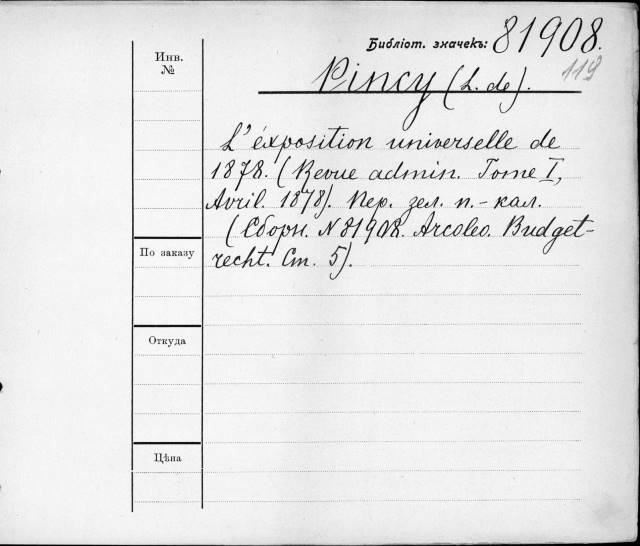 Библіот. значекъ: 81908.
119
Инв.
№
Pincy (L. de).
L'éxposition universelle de
1878. (Revue admin. Tome I,
Avril. 1878). Пер. зел. п.-кал.
(Сборн. N 81908. Arcoleo. Budget-
recht. Ст. 5).
По заказу
Откуда
Цѣна